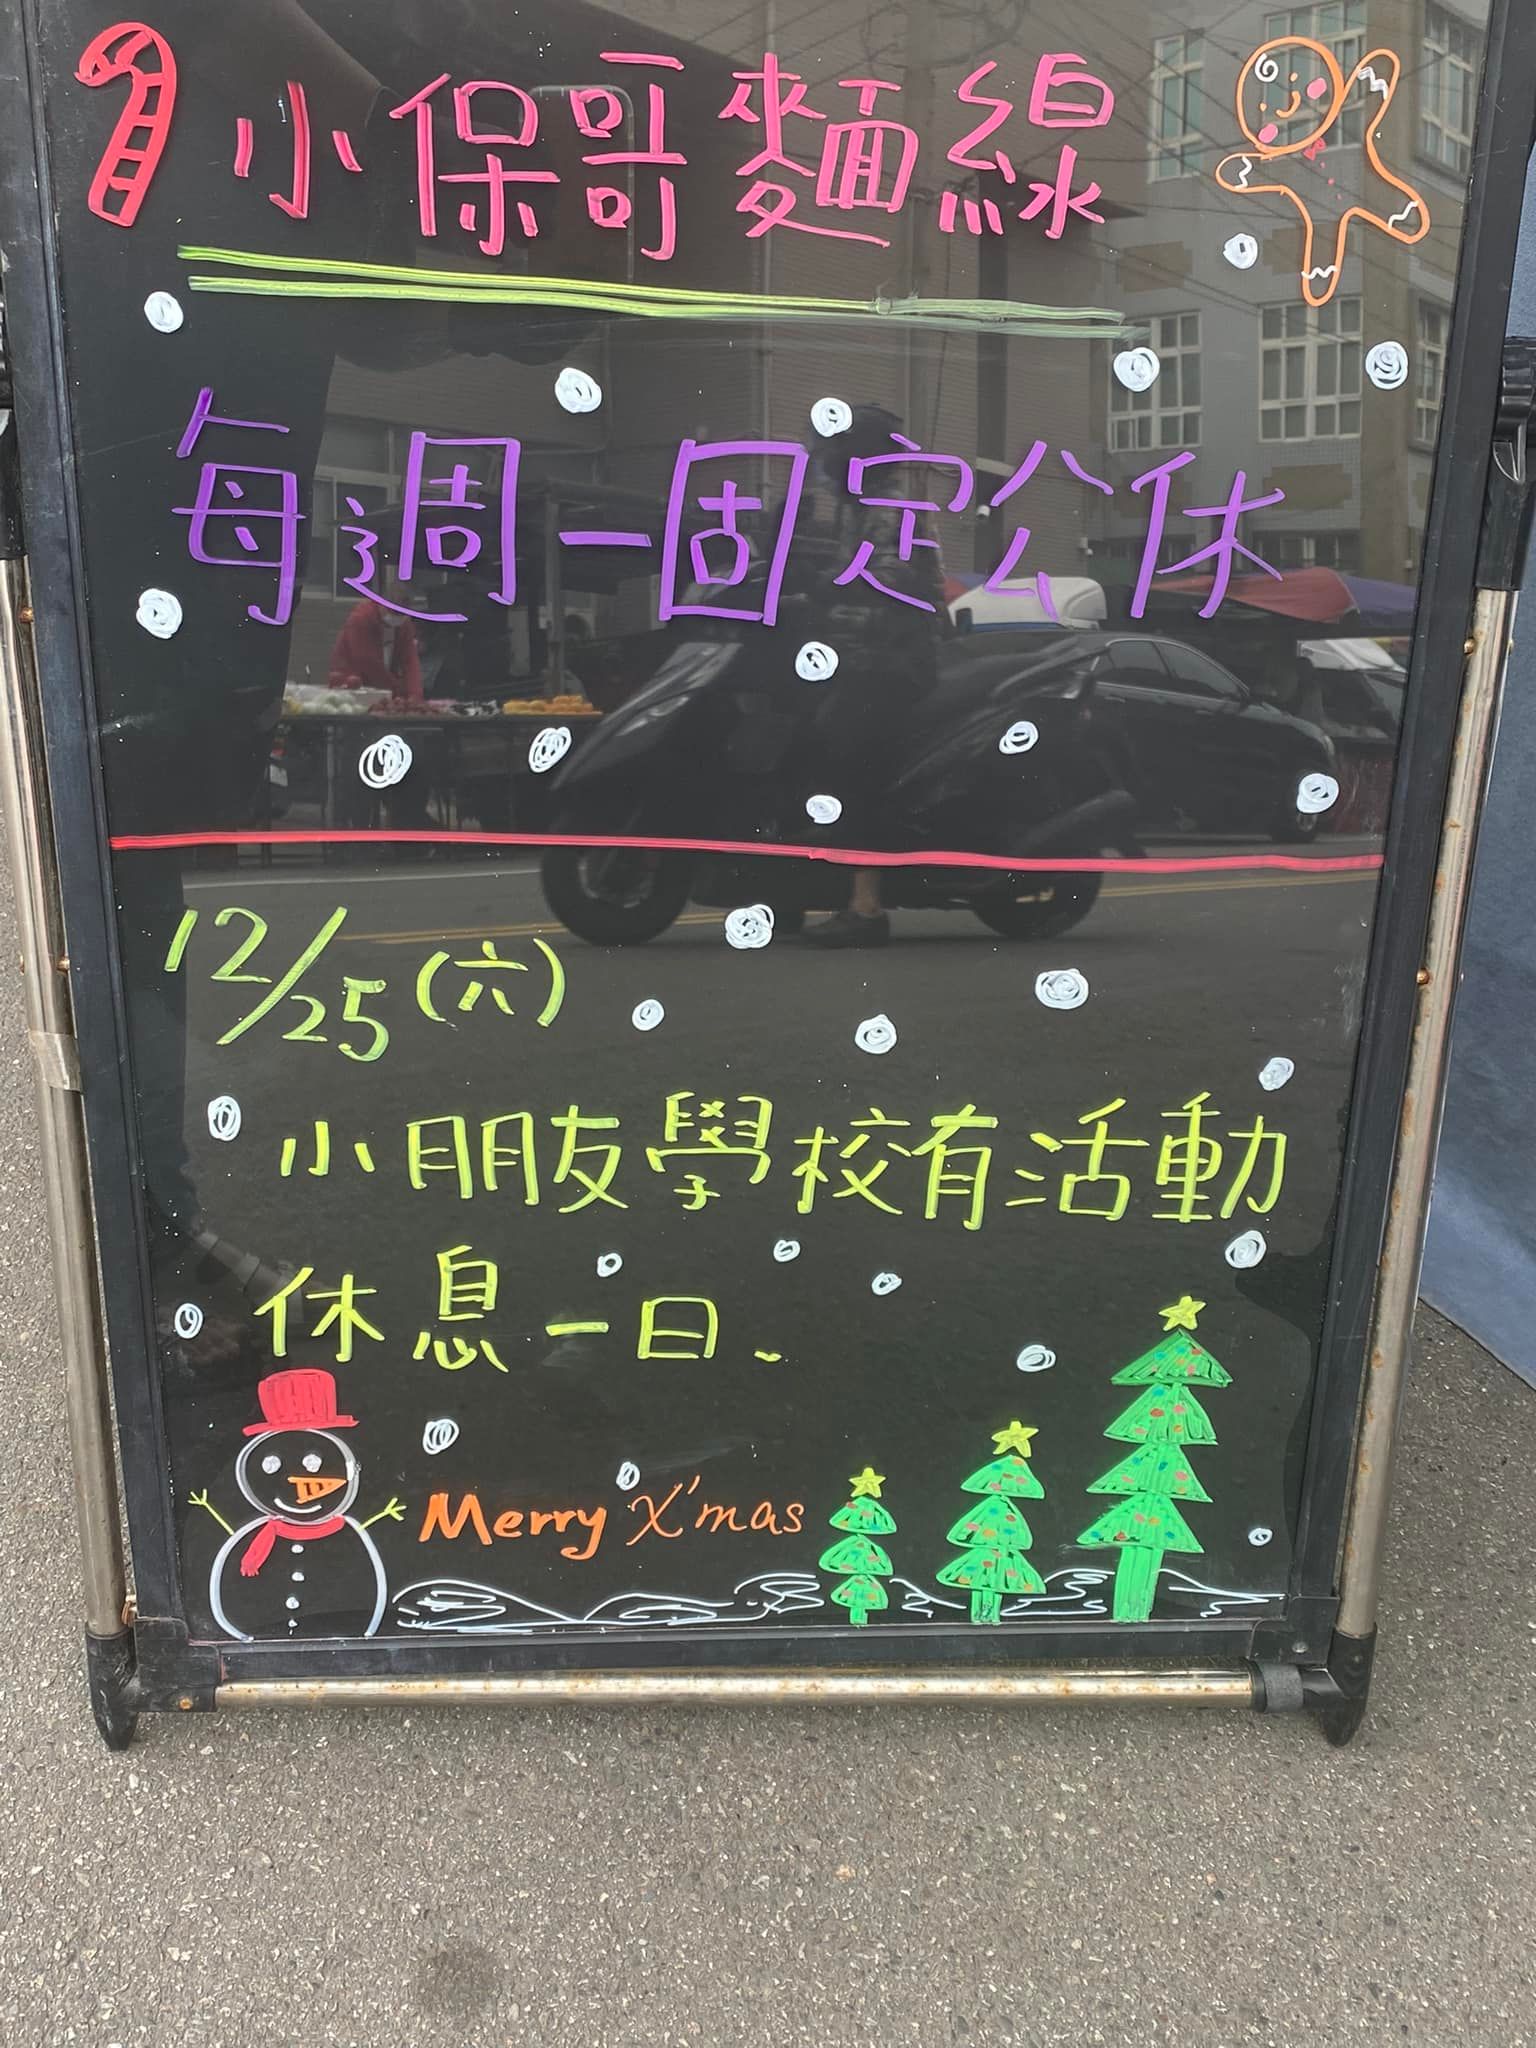 小保哥麵線
每週一固定公休
12/25(六)
小朋友學校有活動
休息一日.
Merry X'mas